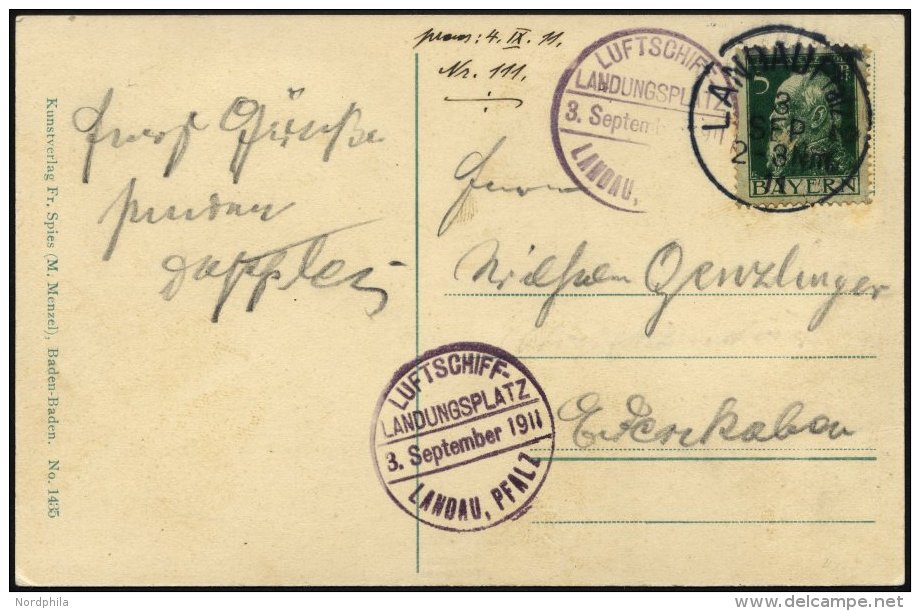 praes: 4. IX. 11.
Nr. 111.
LUFTSCHIFF-
LANDUNGSPLATZ
3. Septem
LANDAU,
LANDAU
5
3
SEP
2-3 Nm.
BAYERN
Kunstverlag Fr. Spies (M. Menzel), Baden-Baden. No. 1435
senden
Herrn
Wilhelm Genzlinger
Edenkoben
LUFTSCHIFF-
LANDUNGSPLATZ
3. September 1911
LANDAU, PFALZ
Nordphila
delcampe.net